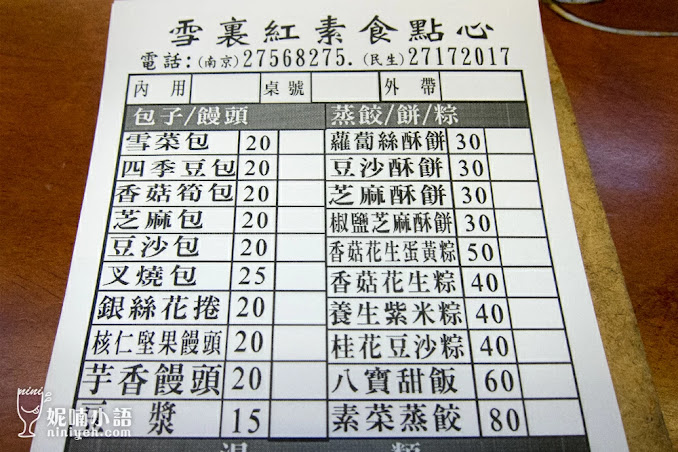 雪裏紅素食點心
電話:(南京)27568275.(民生)27172017
內用 桌號 外帶
包子/饅頭 蒸餃/餅/粽
雪菜包 20 蘿蔔絲酥餅 30
四季豆包 20 豆沙酥餅 30
香菇筍包 20 芝麻酥餅 30
芝麻包 20 椒鹽芝麻酥餅 30
豆沙包 20 香菇花生蛋黃粽 50
叉燒包 25 香菇花生粽 40
銀絲花捲 20 養生紫米粽 40
核仁堅果饅頭 20 桂花豆沙粽 40
芋香饅頭 20 八寶甜飯 60
漿 15 素菜蒸餃 80
湯 類
nini
妮喃小語
niniyeh.com